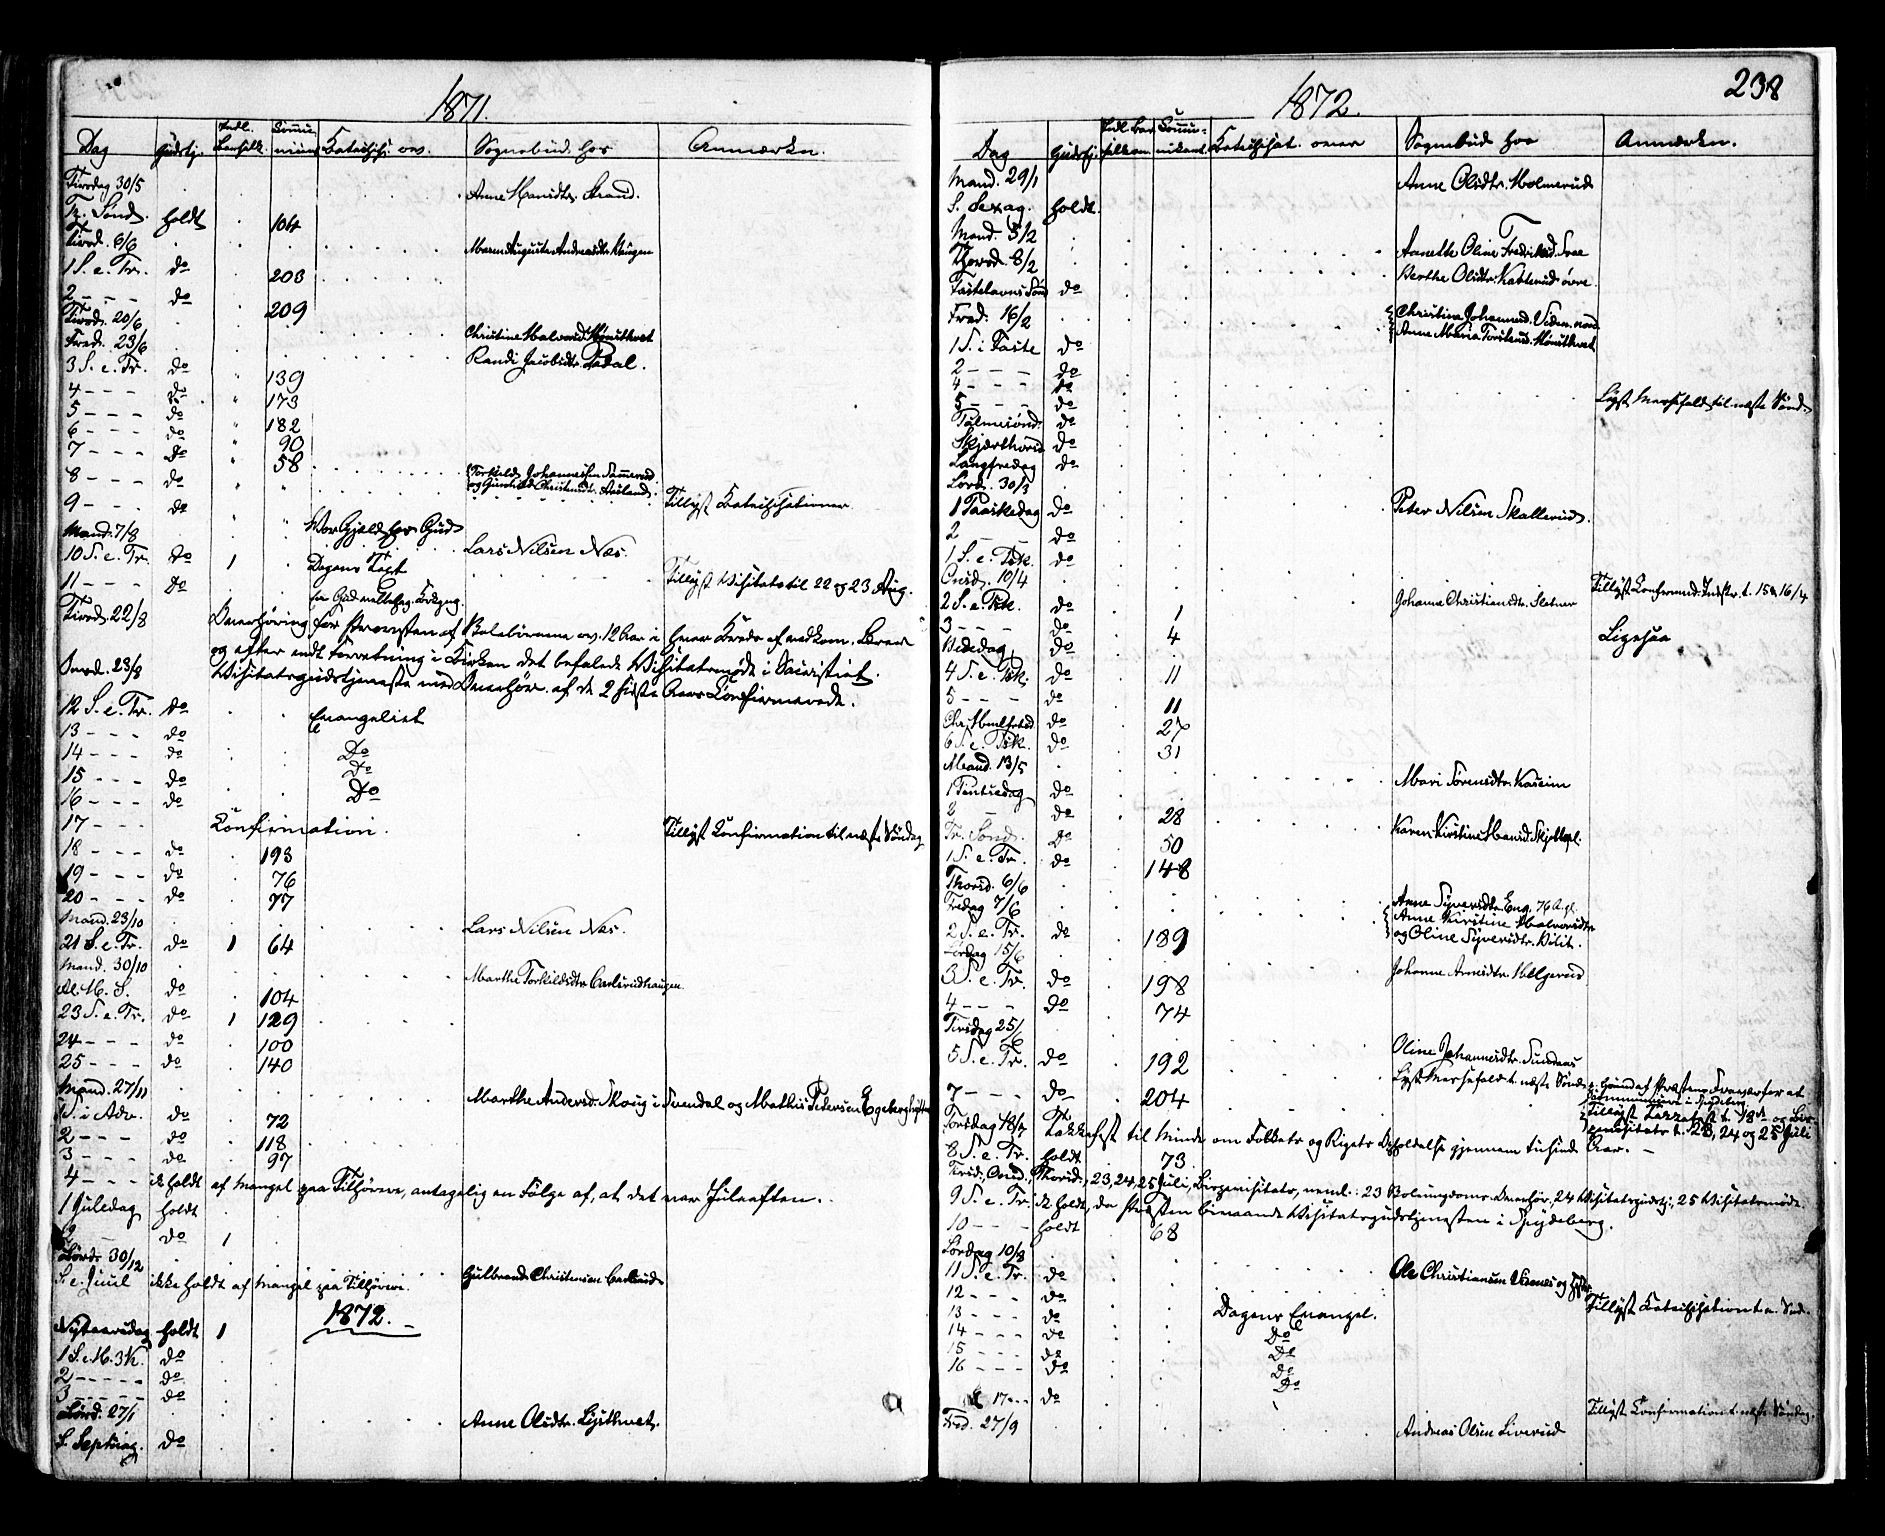 1871.
Dag Gudstj. Indl. Barselk. Commu- nicant. Katechis. ov. Sognebud. hos Anmærkn.
Tirsdag 30/5 Anne Hansdtr. Strand.
Tr. Sønd. holdt 104
Tirsd. 6/6 Maren Augusta Andreasdtr. Haugen
1 S. e. Tr. do 203
2 - - - do 209
Tirsd. 20/6 Christine Halvorsd. Mønsthvet
Fred. 23/6 Randi Jacobsdtr. Dal.
3 S. e. Tr. do 139
4 - - - do 173
5 - - - do 182
6 - - - do 90
7 - - - do 58
8 - - - do Torkild Johannesen Sammerud og Gunhild Christensdtr. Aasland.
9 - - - do Tillyst Katechisationer
Mand. 7/8 Lars Nilsen Næs.
10 S. e. Tr. do 1 Vor Gjeld for Gud
11 - - - do Dagens Text Tillyst Visitats til 22 og 23 Aug.
Tirsd. 22/8 Overhøring for Provsten af Skolebørnene ov. 12 Aar i hver Kreds af vedkom. Lærere
og efter endt Forretning i Kirken det befalede Visitatsmøde i Sacristiet.
Onsd. 23/8 Visitatsgudstjeneste med Overhør. af de 2 sidste Aars Confirmerede.
12 S. e. Tr. do Evangeliet
13 - - - do Do
14 - - - do Do
15 - - - do Do
16 - - - do
17 - - - Confirmation. Tillyst Confirmation til næste Søndag
18 - - - do 193
19 - - - do 76
20 - - - do 77
Mand. 23/10 Lars Nilsen Næs.
21 S. e. Tr. do 1 64
Mand. 30/10 Marthe Torkildsdtr. Carlsrudhaugen
Al. H. S. do 104
23 S. e. Tr. do 1 129
24 - - - do 100
25 - - - do 140
Mand. 27/11 Marthe Andersd. Skoug i Svendal og Mathis Petersen Egeberg
1 S. i Adv. do 72
2 - - - do 118
3 - - - do 97
4 - - - ik holdt af Mangel paa Tilhørere, antagelig en Følge af, at det var Juleaften.
1 Juledag holdt
2 - do 1
Lørd. 30/12 Gulbrand Christensen Carlsrud
S. e. Juul ikke holdt af Mangel paa Tilhørere.
1872.
Nytaarsdag holdt 1
1 S. e. H. 3 K. do
2 - - - - do
3 - - - - do
Lørd. 27/1 Anne Olsdtr. Lysthvet.
S. Septuag. do
1872. 238
Dag Gudstj. Indl. Bar- selkon. Commu- nicant. Katechisat. over Sognebud hos Anmærkn.
Mand. 29/1 Anne Olsdtr. Holmerud
S. Sexag. holdt.
Mand. 5/2 Annette Oline Fredriksd. Svae
Thorsd. 8/2 Berthe Olsdtr. Katterud øvre.
Fastelavns Sønd do
Fred. 16/2 Christine Johannesd. Viden nord.
Anne Maria Torstensd. Mønsthvet
1 S. i Faste do
2 - - - do
4 - - - do
5 - - - do Lyst Messefald til næste Sønd.
Palmesønd. do
Skjærthorsd. do
Langfredag do
Lørd. 30/3 Peter Nilsen Skallerud.
1 Paaskedag do
2 - - do
1 S. e. Psk. do
Onsd. 10/4 Johanne Christiansdtr. Sletner
2 S. e. Psk. do 1 Tillyst Confirmand. Indskr. t. 15 & 16/4
3 - - - do 4
Bededag do Ligesaa
4 S. e. Psk. do 11
5 - - - do 11
Chr. Himlfartsd do 27
6 S. e. Psk. do 31
Mand. 13/5 Mari Sørensdtr. Kaseim
1 Pintsedag do
2 - do 28 Karen Kirstine Hansd. Skjeltopl.
Tr. Sønd. do 50
1 S. e. Tr. do 148
Thorsd. 6/6 Anne Syversdtr. Eng. 76 A. gl.
Fredag 7/6 Anne Kirstine Halvorsdtr. og Oline Syversdtr. Vilit.
2 S. e. Tr. do 189
Lørdag 15/6 Johanne Arnesdtr. Helgerud
3 S. e. Tr. do 198
4 - - - do 74
Tirsdag 25/6 Oline Johannesdtr. Sundaas
5 S. e. Tr. do 192 Lyst Messefald t. næste Sønd. p. Grund af Præstens Fraværfer at communicere i Spydeberg
7 - - - do 204 Tillyst Takkefest t. 18de og Bispevisitats t. 23, 24 og 25 Juli
Torsdag 18/7 Takkefest til Minde om Folkets og Rigets Beholdelse gjennem tusinde Aar. -
8 S. e. Tr. holdt 73
Tirsd., Onsd., Thorsd., 23, 24, 25 Juli, Bispevisitats, neml.: 23 Ungdoms Overhør. 24 Visitatsgudstj., 25 Visitatsmøde.
9 S. e. Tr. ik holdt, da Præsten bivaanede Visitatsgudstjenesten i Spydeberg.
10 - - - holdt 68
Lørdag 10/8 Ole Christiansen Vesnes og Hustr.
11 S. e. Tr. do
12 - - - do Tillyst Katechisation t. n. Sønd.
13 - - - do Dagens Evangel.
14 - - - do Do
15 - - - do Do
16 - - - do Do
17 - - - do Do Tillyst Confirmation t. næste Søndag.
Fred. 27/9 Andreas Olsen Liverud